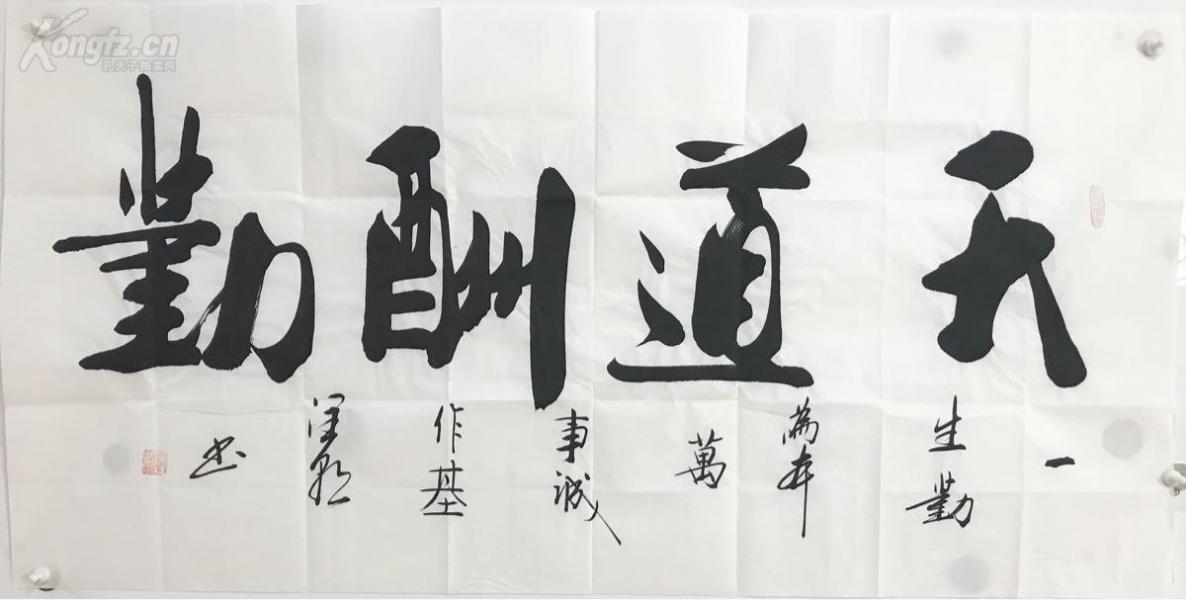 天道酬勤
一
生勤
為本
萬
事誠
作基
书
Kongfz.cn
孔夫子拍卖网